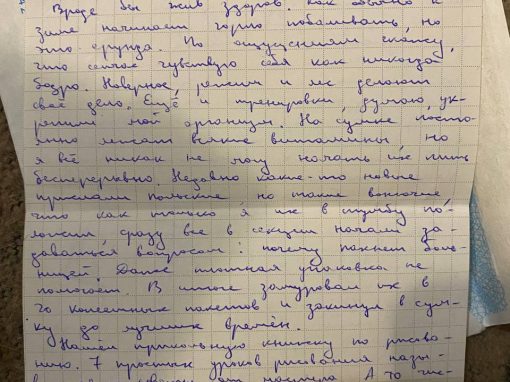 Вроде бы жив здоров. Как обычно к
зиме начинает горло побаливать, но
это ерунда. По ощущениям скажу,
что сейчас чувствую себя как никогда
бодро. Наверное, режим и лес делают
своё дело. Ещё и тренировки, думаю, ук-
репили мой организм. На сумке посто-
янно лежат всякие витамины, но
я всё никак не могу начать их пить
беспрерывно. Недавно какие-то новые
прислали польские, но такие вонючие
что как только я их в тумбу по-
ложил, сразу все в секции начали за-
даваться вопросом: почему пахнет боль-
ницей. Даже плотная упаковка не
помогает. В итоге замуровал их в
70 пакетов и закинул в сум-
ку до лучших времён.
Нашёл прикольную книжку по рисова-
нию. 7 простых уроков рисования назы-
А то